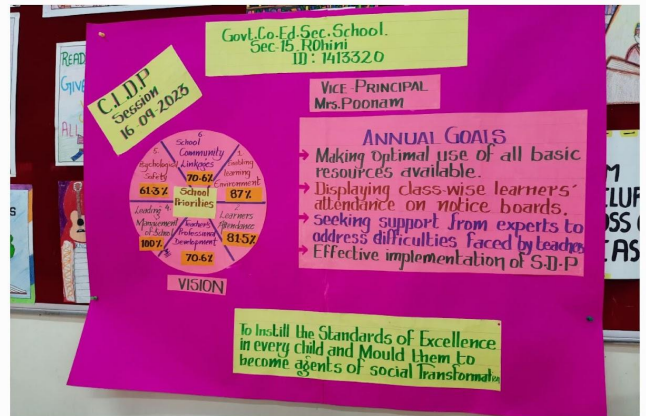 Govt.Co-Ed.Sec.School.
Sec-15 ROhini
ID: 1413320
C.L.D.P
Session
16-09-2023
VICE-PRINCIPAL
Mrs.Poonam
6.
School
Community
Linkages
70-6%
1.
Enabling
learning
Environment
87%
2.
Learners
Attendance
81-5%
3.
Teacher's
Professional
Development
70-6%
4.
Leading
Management
of School
100%
5.
Psychological
Safety
61-3%
School
Priorities
ANNUAL GOALS
→ Making optimal use of all basic
resources available.
→ Displaying class-wise learners'
attendance on notice boards.
→ seeking support from experts to
address difficulties faced by teachers
→ Effective implementation of S.D.P
VISION
To Instill the Standards of Excellence
in every child and Mould them to
become agents of social Transformation
READ
GIVE
ALL